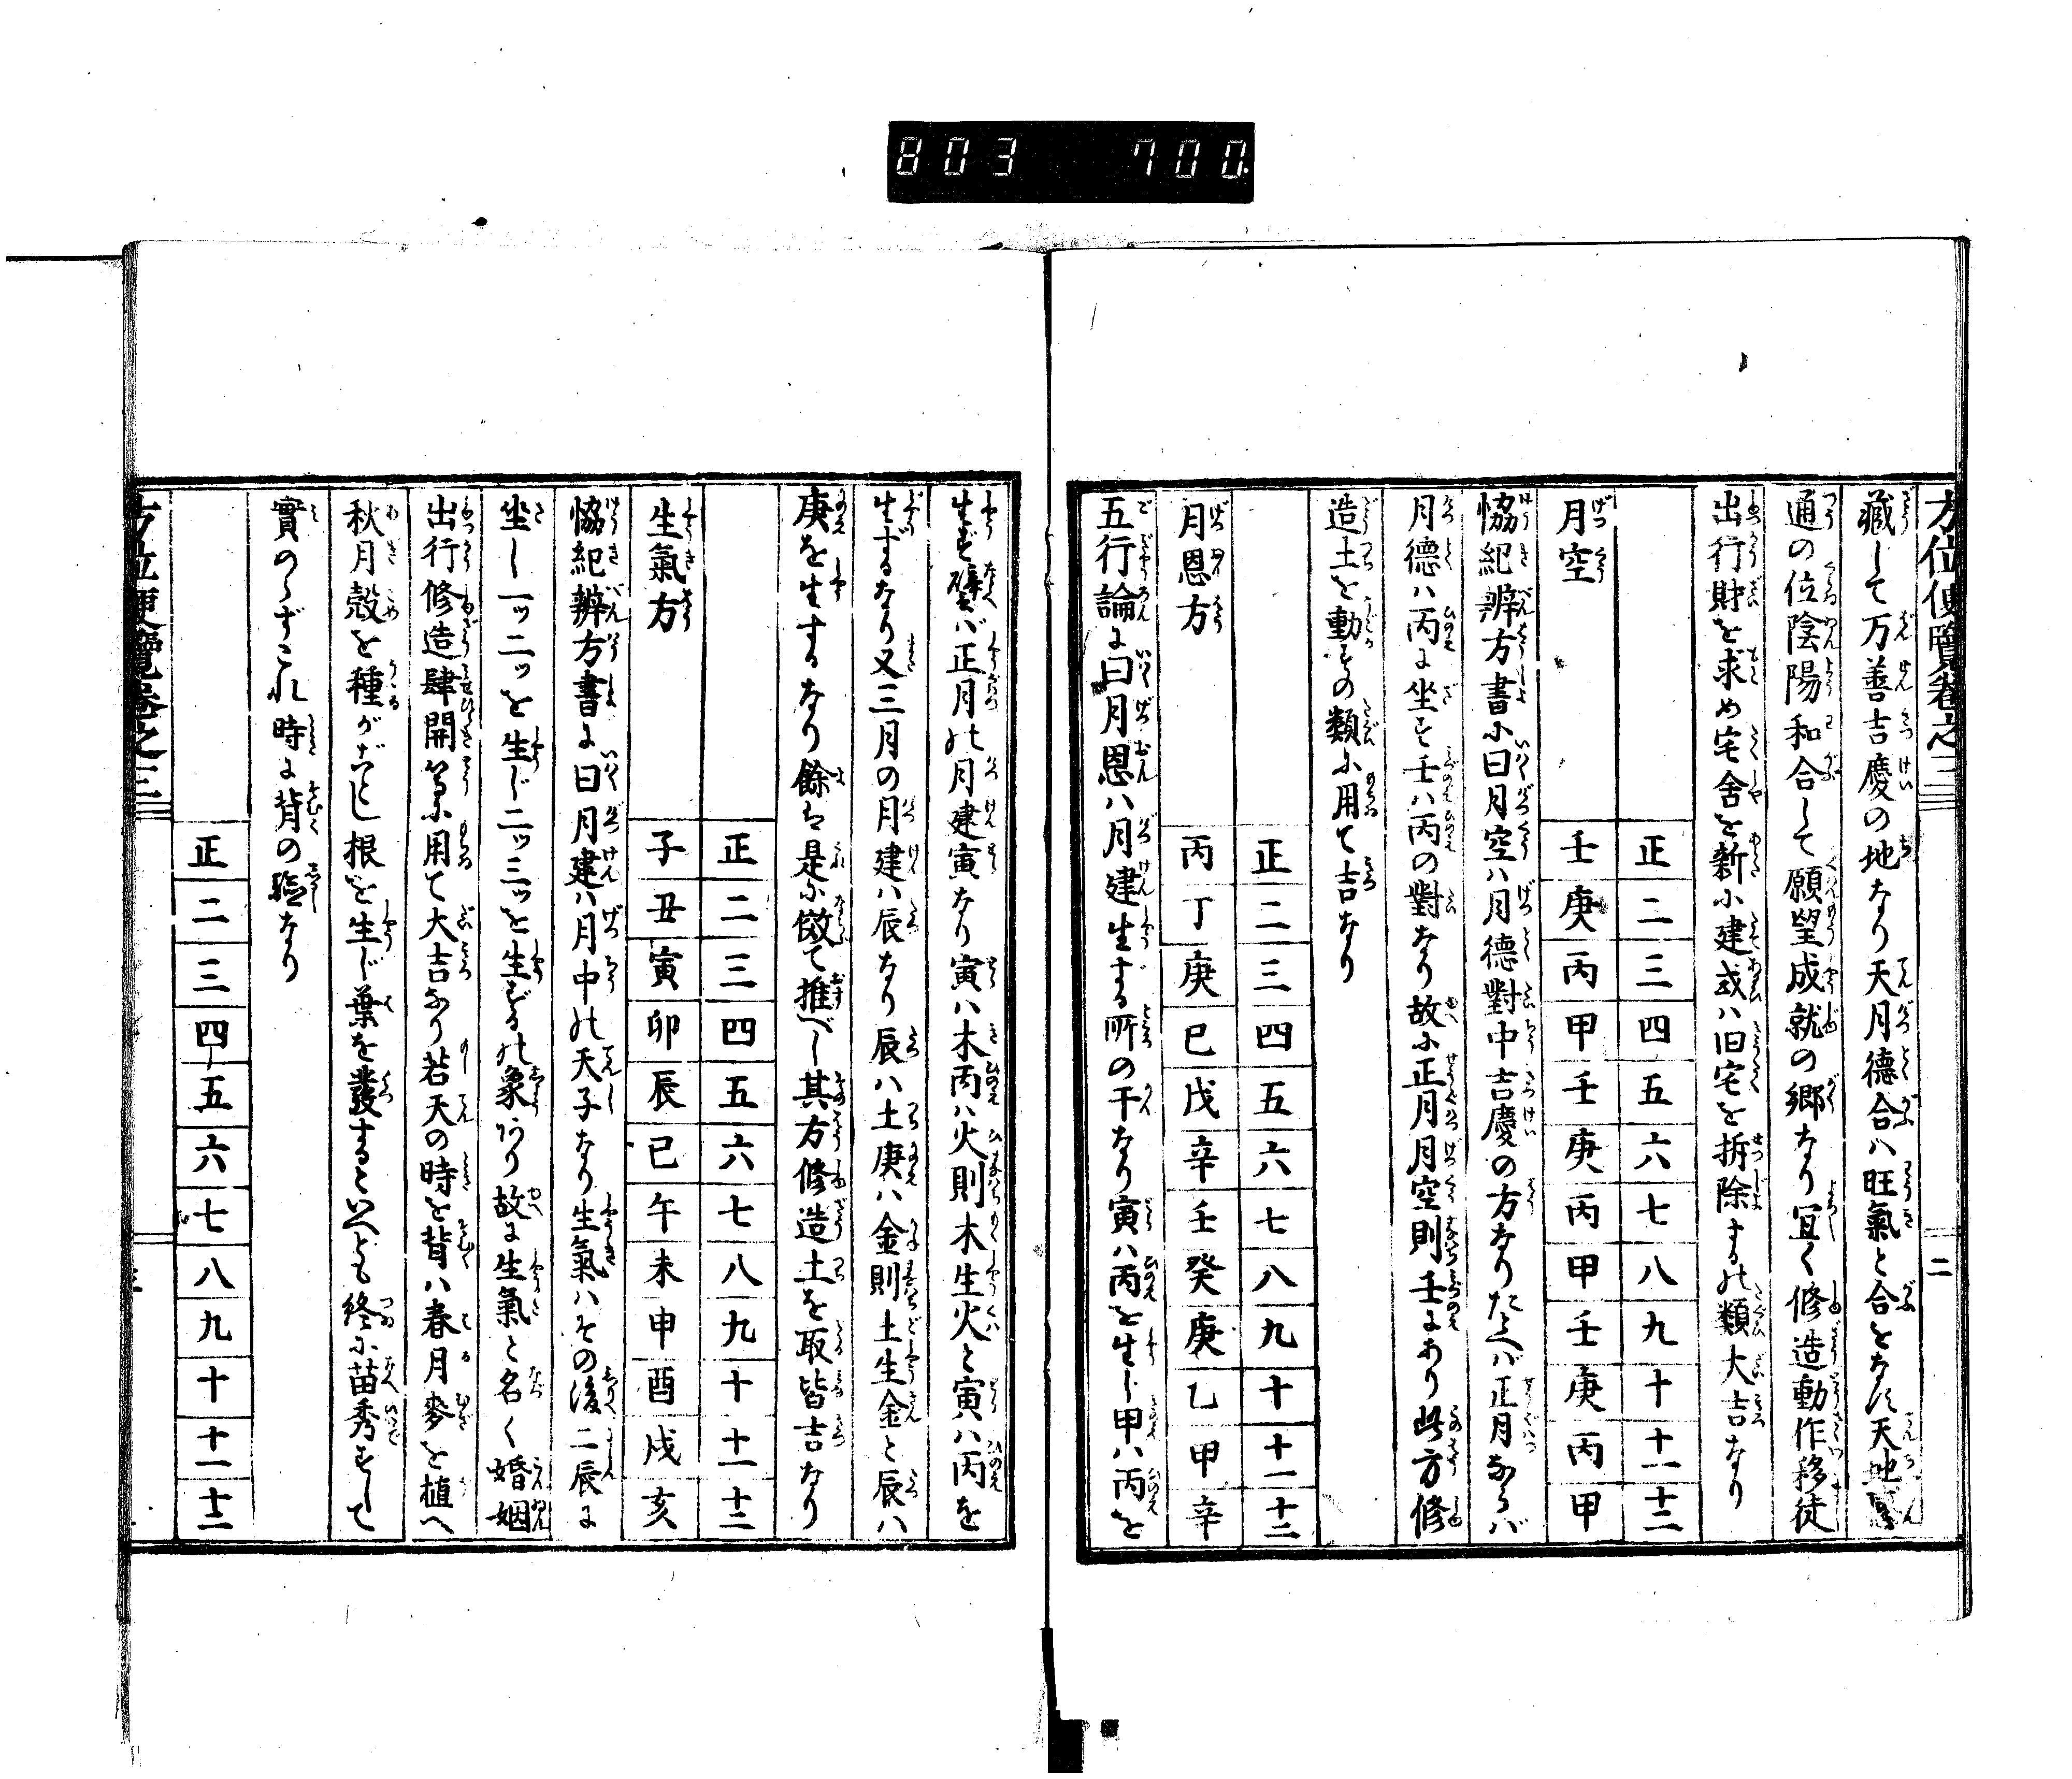 803 700
方位便覽卷之三
二
藏して万善吉慶の地なり天月德合ハ旺氣と合をなす天地
通の位陰陽和合して願望成就の郷なり宜く修造動作移徒
出行財を求め宅舍を新に建或ハ旧宅を拆除するの類大吉なり
正 二 三 四 五 六 七 八 九 十 十一 十二
月空 壬 庚 丙 甲 壬 庚 丙 甲 壬 庚 丙 甲
協紀辨方書に曰月空ハ月德對中吉慶の方なりたとへバ正月ならバ
月德ハ丙に坐す壬ハ丙の對なり故に正月月空則壬にあり此方修
造土を動すの類に用て吉なり
正 二 三 四 五 六 七 八 九 十 十一 十二
月恩方 丙 丁 庚 巳 戊 辛 壬 癸 庚 乙 甲 辛
五行論に曰月恩ハ月建生する所の干なり寅ハ丙を生し甲ハ丙を
生ず譬バ正月の月建寅なり寅ハ木丙ハ火則木生火と寅ハ丙を
生ずるなり又三月の月建ハ辰なり辰ハ土庚ハ金則土生金と辰ハ
庚を生するなり餘は是に倣て推べし其方修造土を取皆吉なり
正 二 三 四 五 六 七 八 九 十 十一 十二
生氣方 子 丑 寅 卯 辰 巳 午 未 申 酉 戌 亥
協紀辨方書に曰月建ハ月中の天子なり生氣ハその後二辰に
坐し一ッ二ッを生じ二ッ三ッを生ずるの象あり故に生氣と名く婚姻
出行修造肆開等に用て大吉なり若天の時を背ハ春月麥を植へ
秋月殻を種がごとし根を生じ葉を發するといへども終に苗秀ずして
實のらずこれ時に背の驗なり
正 二 三 四 五 六 七 八 九 十 十一 十二
方位便覽卷之三